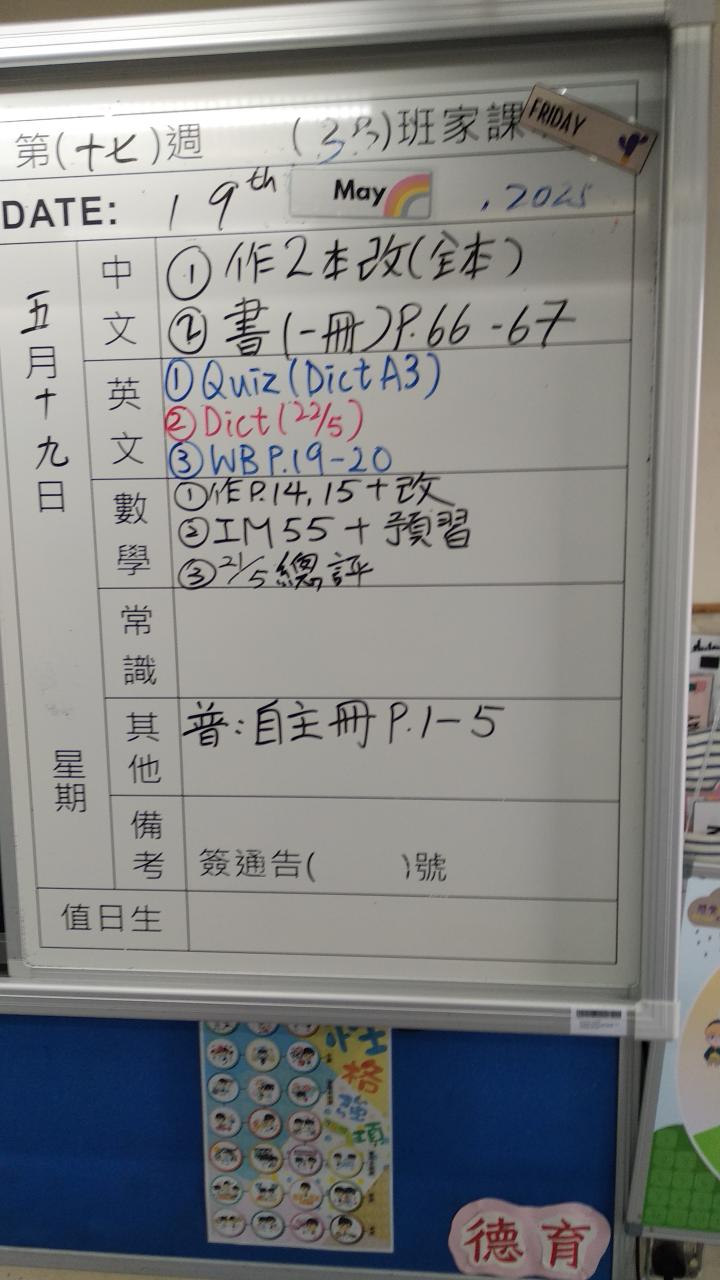 第(十七)週 (3B)班家課
FRIDAY
DATE: 19th May, 2025
五月十九日
星期
中文
①作2本改(全本)
②書(一冊)P.66-67
英文
①Quiz(Dict A3)
②Dict(22/5)
③WB P.19-20
數學
①作P.14,15+改
②IM55+預習
③21/5總評
常識
其他
普:自主冊P.1-5
備考
簽通告( )號
值日生
性格強項
德育